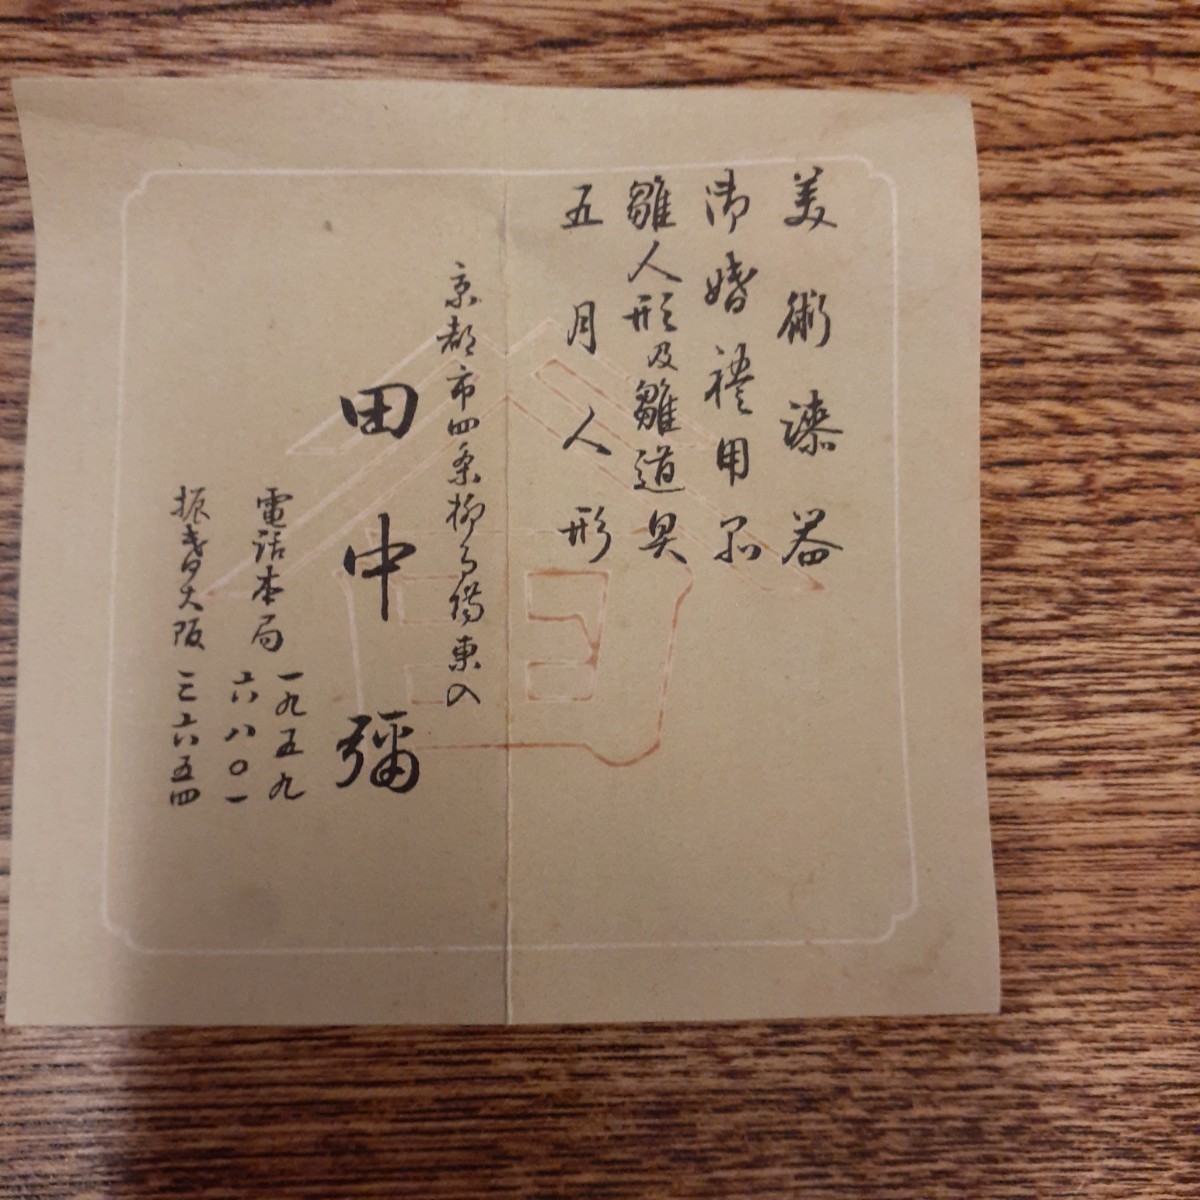 美術漆器
御婚禮用品
雛人形及雛道具
五月人形
京都市四条柳馬場東入
田中彌
電話本局
一九五九
六八〇一
振替大阪三六五四